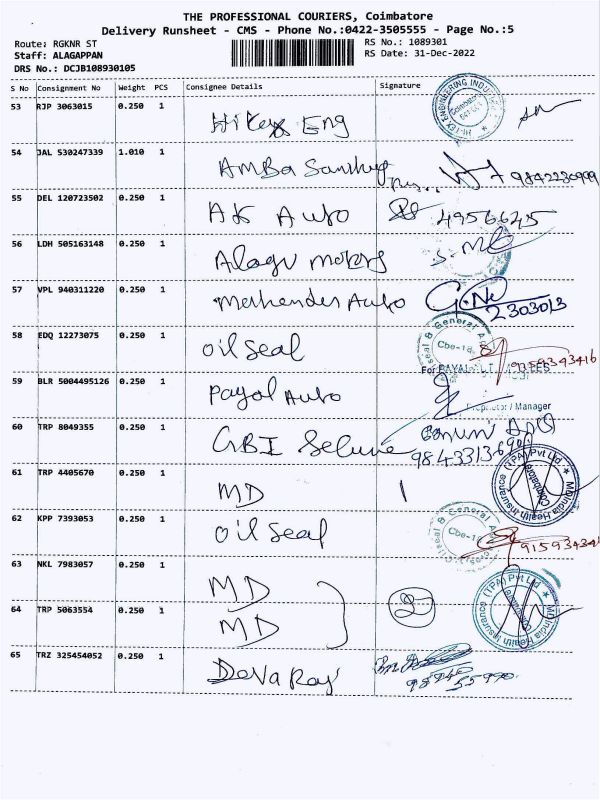 THE PROFESSIONAL COURIERS, Coimbatore
Delivery Runsheet - CMS - Phone No.:0422-3505555 - Page No.:5
Route: RGKNR ST
RS No.: 1089301
Staff: ALAGAPPAN
RS Date: 31-Dec-2022
DRS No.: DCJB108930105
S No Consignment No Weight PCS Consignee Details Signature
53 RJP 3063015 0.250 1 Hitex Eng
54 JAL 530247339 1.010 1 AMBa 9842230999
55 DEL 120723502 0.250 1 AK Auto 4956645
56 LDH 505163148 0.250 1 Alagu motors
57 VPL 940311220 0.250 1 Auto 2303013
58 EDQ 12273075 0.250 1 oil seal
& General
Cbe-18
For PAYAL
59 BLR 5004495126 0.250 1 Payal Auto
Proprietor / Manager
60 TRP 8049355 0.250 1 GBI
61 TRP 4405670 0.250 1 MD
MDIndia Health Insurance (TPA) Pvt Ltd
Coimbatore
62 KPP 7393053 0.250 1 oil seal
& General
Cbe-18
63 NKL 7983057 0.250 1 MD
64 TRP 5063554 0.250 1 MD 2
MDIndia Health Insurance (TPA) Pvt Ltd
Coimbatore
65 TRZ 325454052 0.250 1 Devaraj